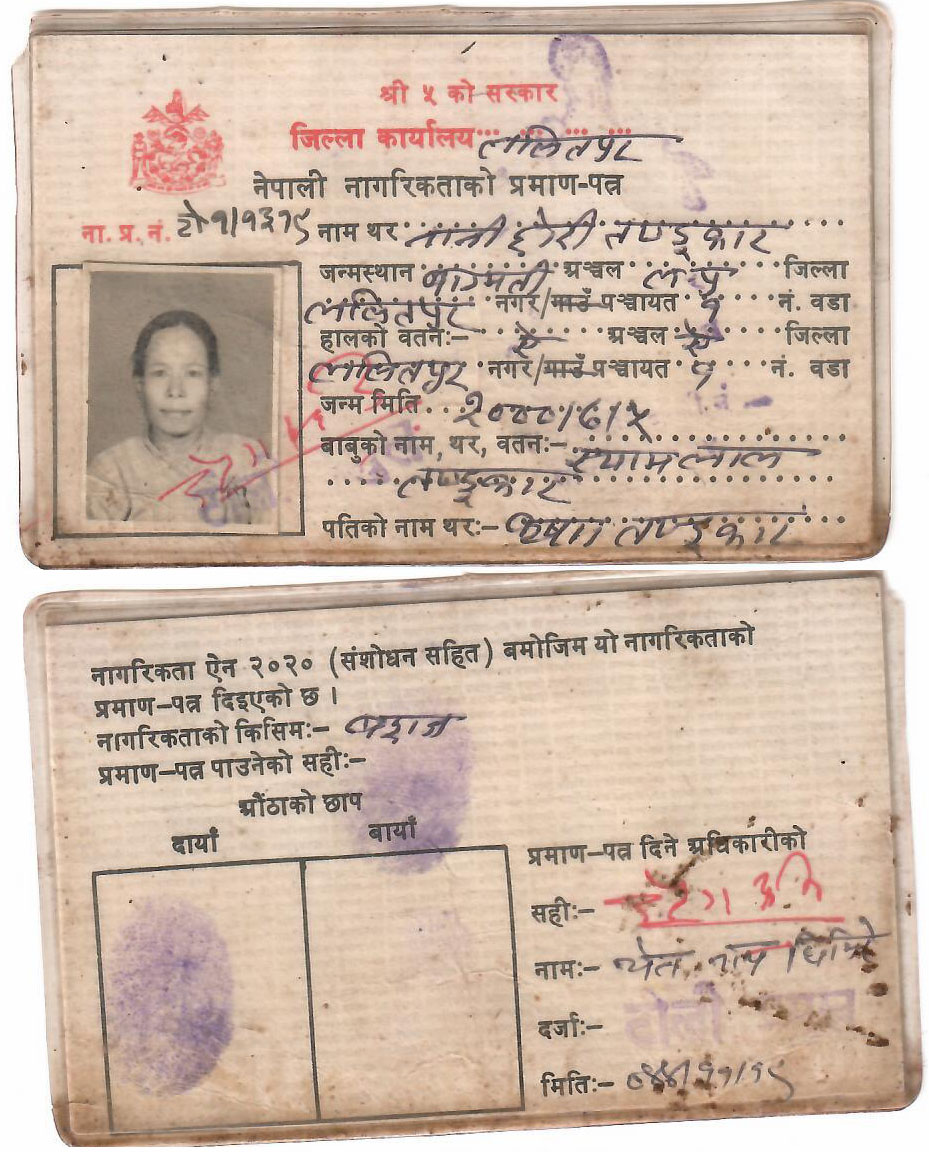 श्री ५ को सरकार
जिल्ला कार्यालय ललितपुर
नेपाली नागरिकताको प्रमाण-पत्र
ना. प्र. नं. टो १/१३७९ नाम थर नानी छोरी तण्डूकार
जन्मस्थान बागमती अञ्चल ल पु जिल्ला
ललितपुर नगर/गाउँ पञ्चायत ९ नं. वडा
हालको वतनः- ऐ अञ्चल ऐ जिल्ला
ललितपुर नगर/गाउँ पञ्चायत ९ नं. वडा
जन्म मिति २०००।७।५
बाबुको नाम, थर, वतनः- श्याम लाल
तण्डूकार
पतिको नाम थरः- तण्डूकार
नागरिकता ऐन २०२० (संशोधन सहित) बमोजिम यो नागरिकताको
प्रमाण-पत्र दिइएको छ ।
नागरिकताको किसिमः- वंशज
प्रमाण-पत्र पाउनेको सहीः-
औंठाको छाप
दायाँ बायाँ
प्रमाण-पत्र दिने अधिकारीको
सहीः-
नामः-
दर्जाः- टोली
मितिः- ०४४।११।१९